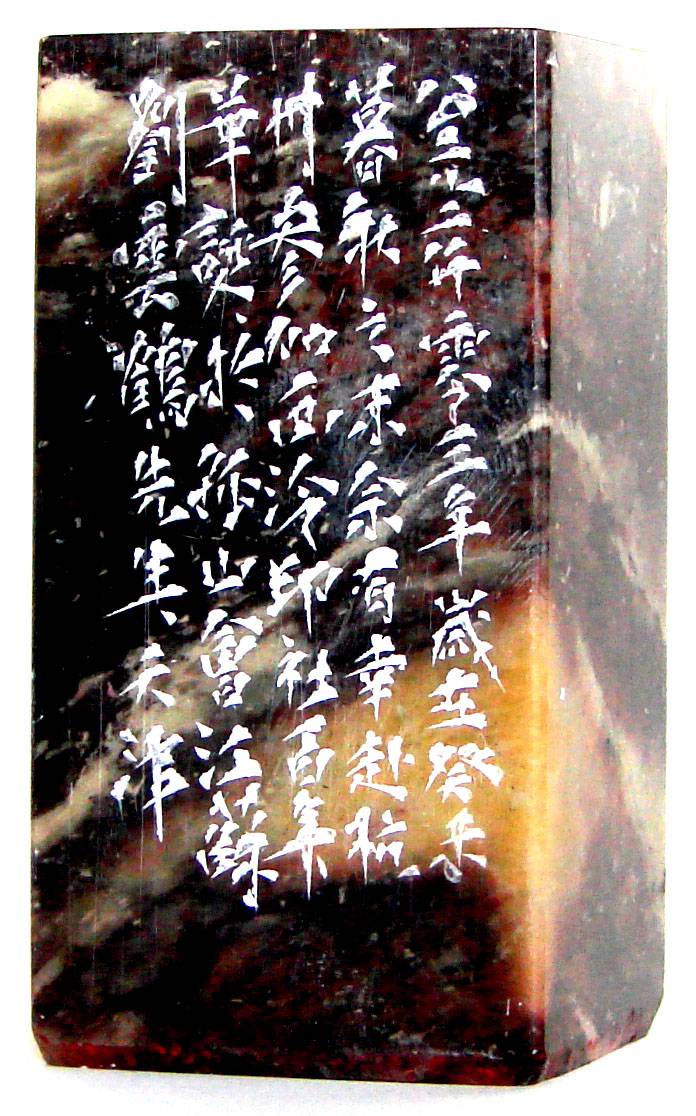 公元二仟零三年歲在癸未
暮秋之末余有幸赴杭
州參加西泠印社百年
華誕於孤山會江蘇
劉雲鶴先生、天津